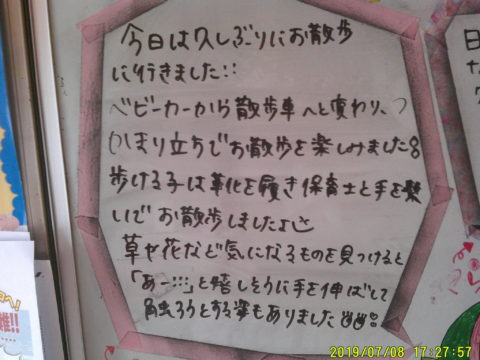 今日は久しぶりにお散歩
に行きました!!
ベビーカーから散歩車へと変わり、つ
かまり立ちでお散歩を楽しみました
歩ける子は革化を履き保育士と手を繋
いでお散歩しましたよ
草や花など気になるものを見つけると
「あー!!」と嬉しそうに手を伸ばして
触ろうとする姿もありました
日
な
2019/07/08 17:27:57